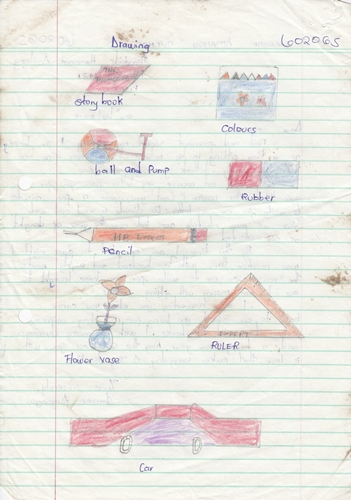 Drawing
602065
story book
Colours
ball and Pump
Rubber
HB EXPERT
Pencil
Flower vase
EXPERT
RULER
Car